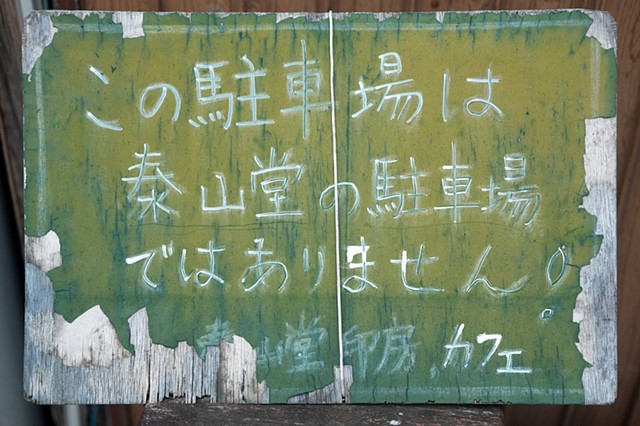 この駐車場は
泰山堂の駐車場
ではありません。
泰山堂印房、カフェ